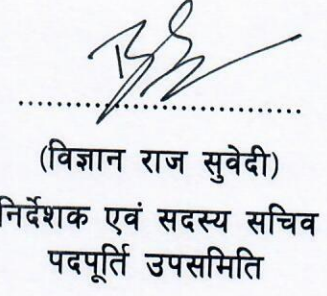 (विज्ञान राज सुवेदी)
निर्देशक एवं सदस्य सचिव
पदपूर्ति उपसमिति